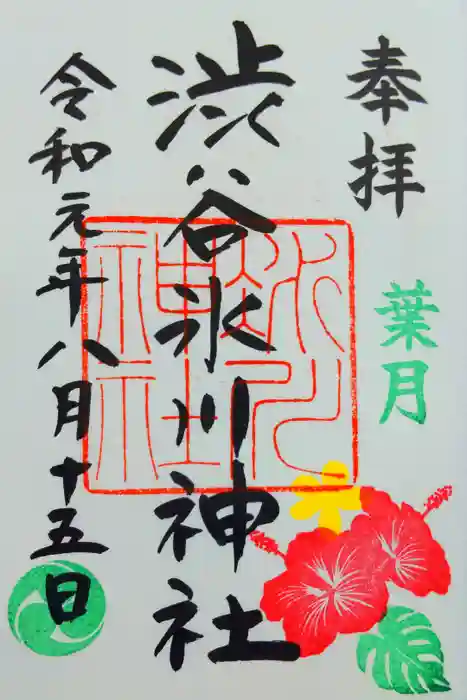 奉拝
葉月
渋谷氷川神社
令和元年八月十五日